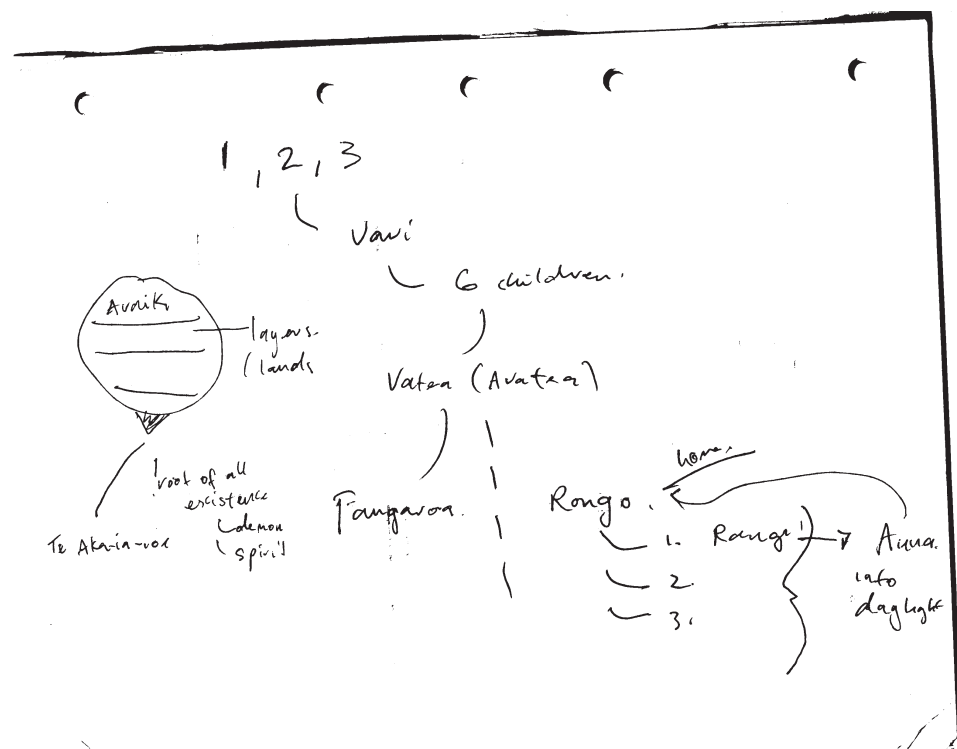 1, 2, 3
Vari
6 children.
Avaiki
layers.
/ lands
Vatea (Avatea)
home.
root of all
existence
demon
spirit
Te Aka-ia-roe
Tangaroa.
Rongo.
1. Rangi
2.
3.
Auua.
into
daylight